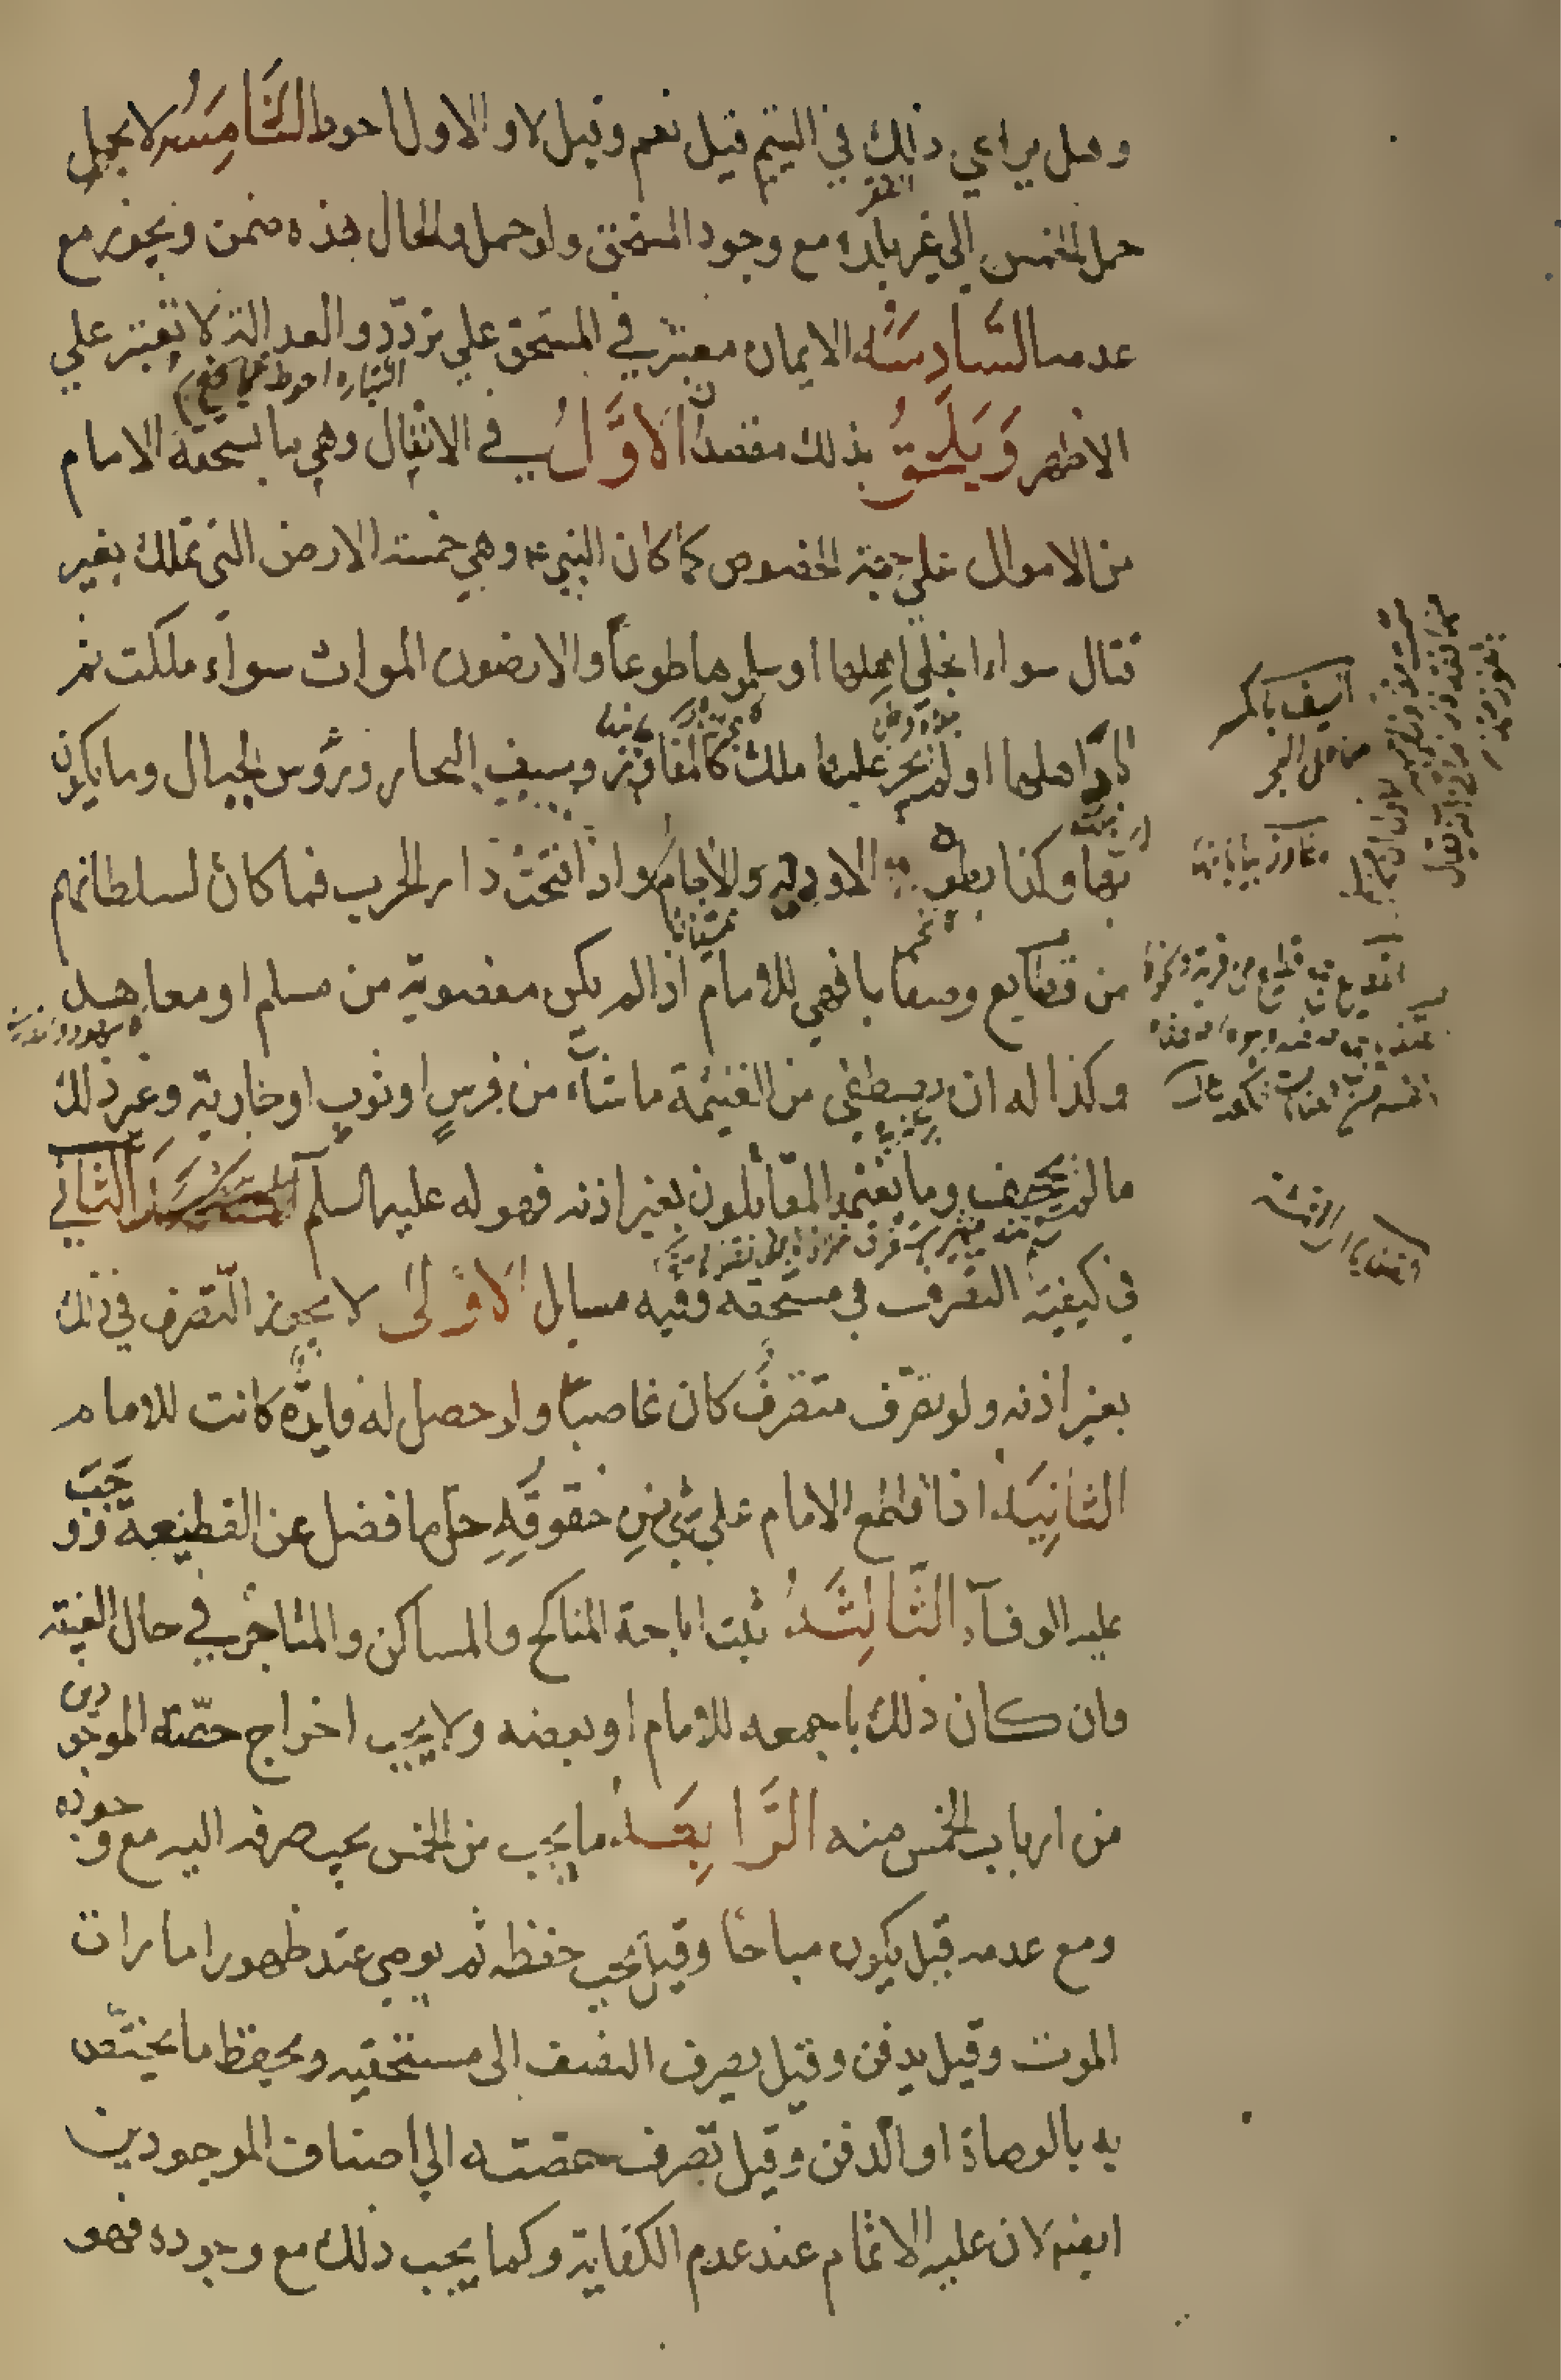 وهل يراعي ذلك في اليتيم قيل نعم وقيل لا والاول احوط الخَامِسَه لا يحل
حمل الخمس الى غير بلده مع وجود المستحق ولو حمل والحال هذه ضمن ويجوز مع
عدمه السَّادِسَه الايمان معتبر في المستحق علي تردّد والعدالة لا تعتبر علي
الاظهر وَيَلحَقُ بذلك مقصدان الاوَّلُ في الانفال وهي ما يستحقه الامام
من الاموال علي جهة الخصوص كما كان النبي ع وهي خمسة الارض التى تملك بغير
قتال سواء انجلي اهلها او سلموها طوعاً والارضون الموات سواء ملكت ثم
باد اهلها او لم يجر عليها ملك كالمفاوز وسيف البحار ورؤس الجبال وما يكون
بها وكذا بطون الاودية والاجام واذا فتحت دار الحرب فما كان لسلطانهم
من قطايع وصفايا فهي للامام اذا لم يكن مغصوبة من مسلم او معاهد
وكذا له ان يصطفي من الغنيمة ما شاء من فرسٍ او ثوبٍ او جارية وغير ذلك
ما لم يجحف وما يغنمه المقاتلون بغير اذنه فهو له عليه السلم المقصد الثاني
في كيفية التصرف في مستحقه وفيه مسايل الاوْلى لا يجوز التصرف في ذلك
بغير اذنه ولو تصرّف متصرفُ كان غاصباً ولو حصل له فايدة كانت للامام
الثانِيَة اذا قاطع الامام علي شئ من حقوقِهِ حل ما فضل عن القطيعة ووجب
عليه الوفآء الثَّالِثَةُ ثبت اباحة المناكح والمساكن والمتاجر في حال الغيبة
وان كان ذلك باجمعه للامام او بعضه ولا يجب اخراج حصّة الموجودين
من ارباب الخمس منه الرَّابِعَة ما يجب من الخمس يجب صرفه اليه مع وجوده
ومع عدمه قيل يكون مباحا وقيل يجب حفظه ثم يوصي عند ظهور امارات
الموت وقيل يدفن وقيل يصرف النصف الى مستحقيه ويحفظ ما يختصّ
به بالوصاة او الدفن وقيل تصرف حصته الي اصناف الموجودين
ايضا لان عليه الاتمام عند عدم الكفاية وكما يجب ذلك مع وجوده فهو
السيف بالكسر
ساحل البحر